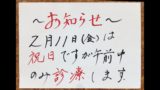 ～お知らせ～
2月11日(金)は
祝日ですが午前中
のみ診療します